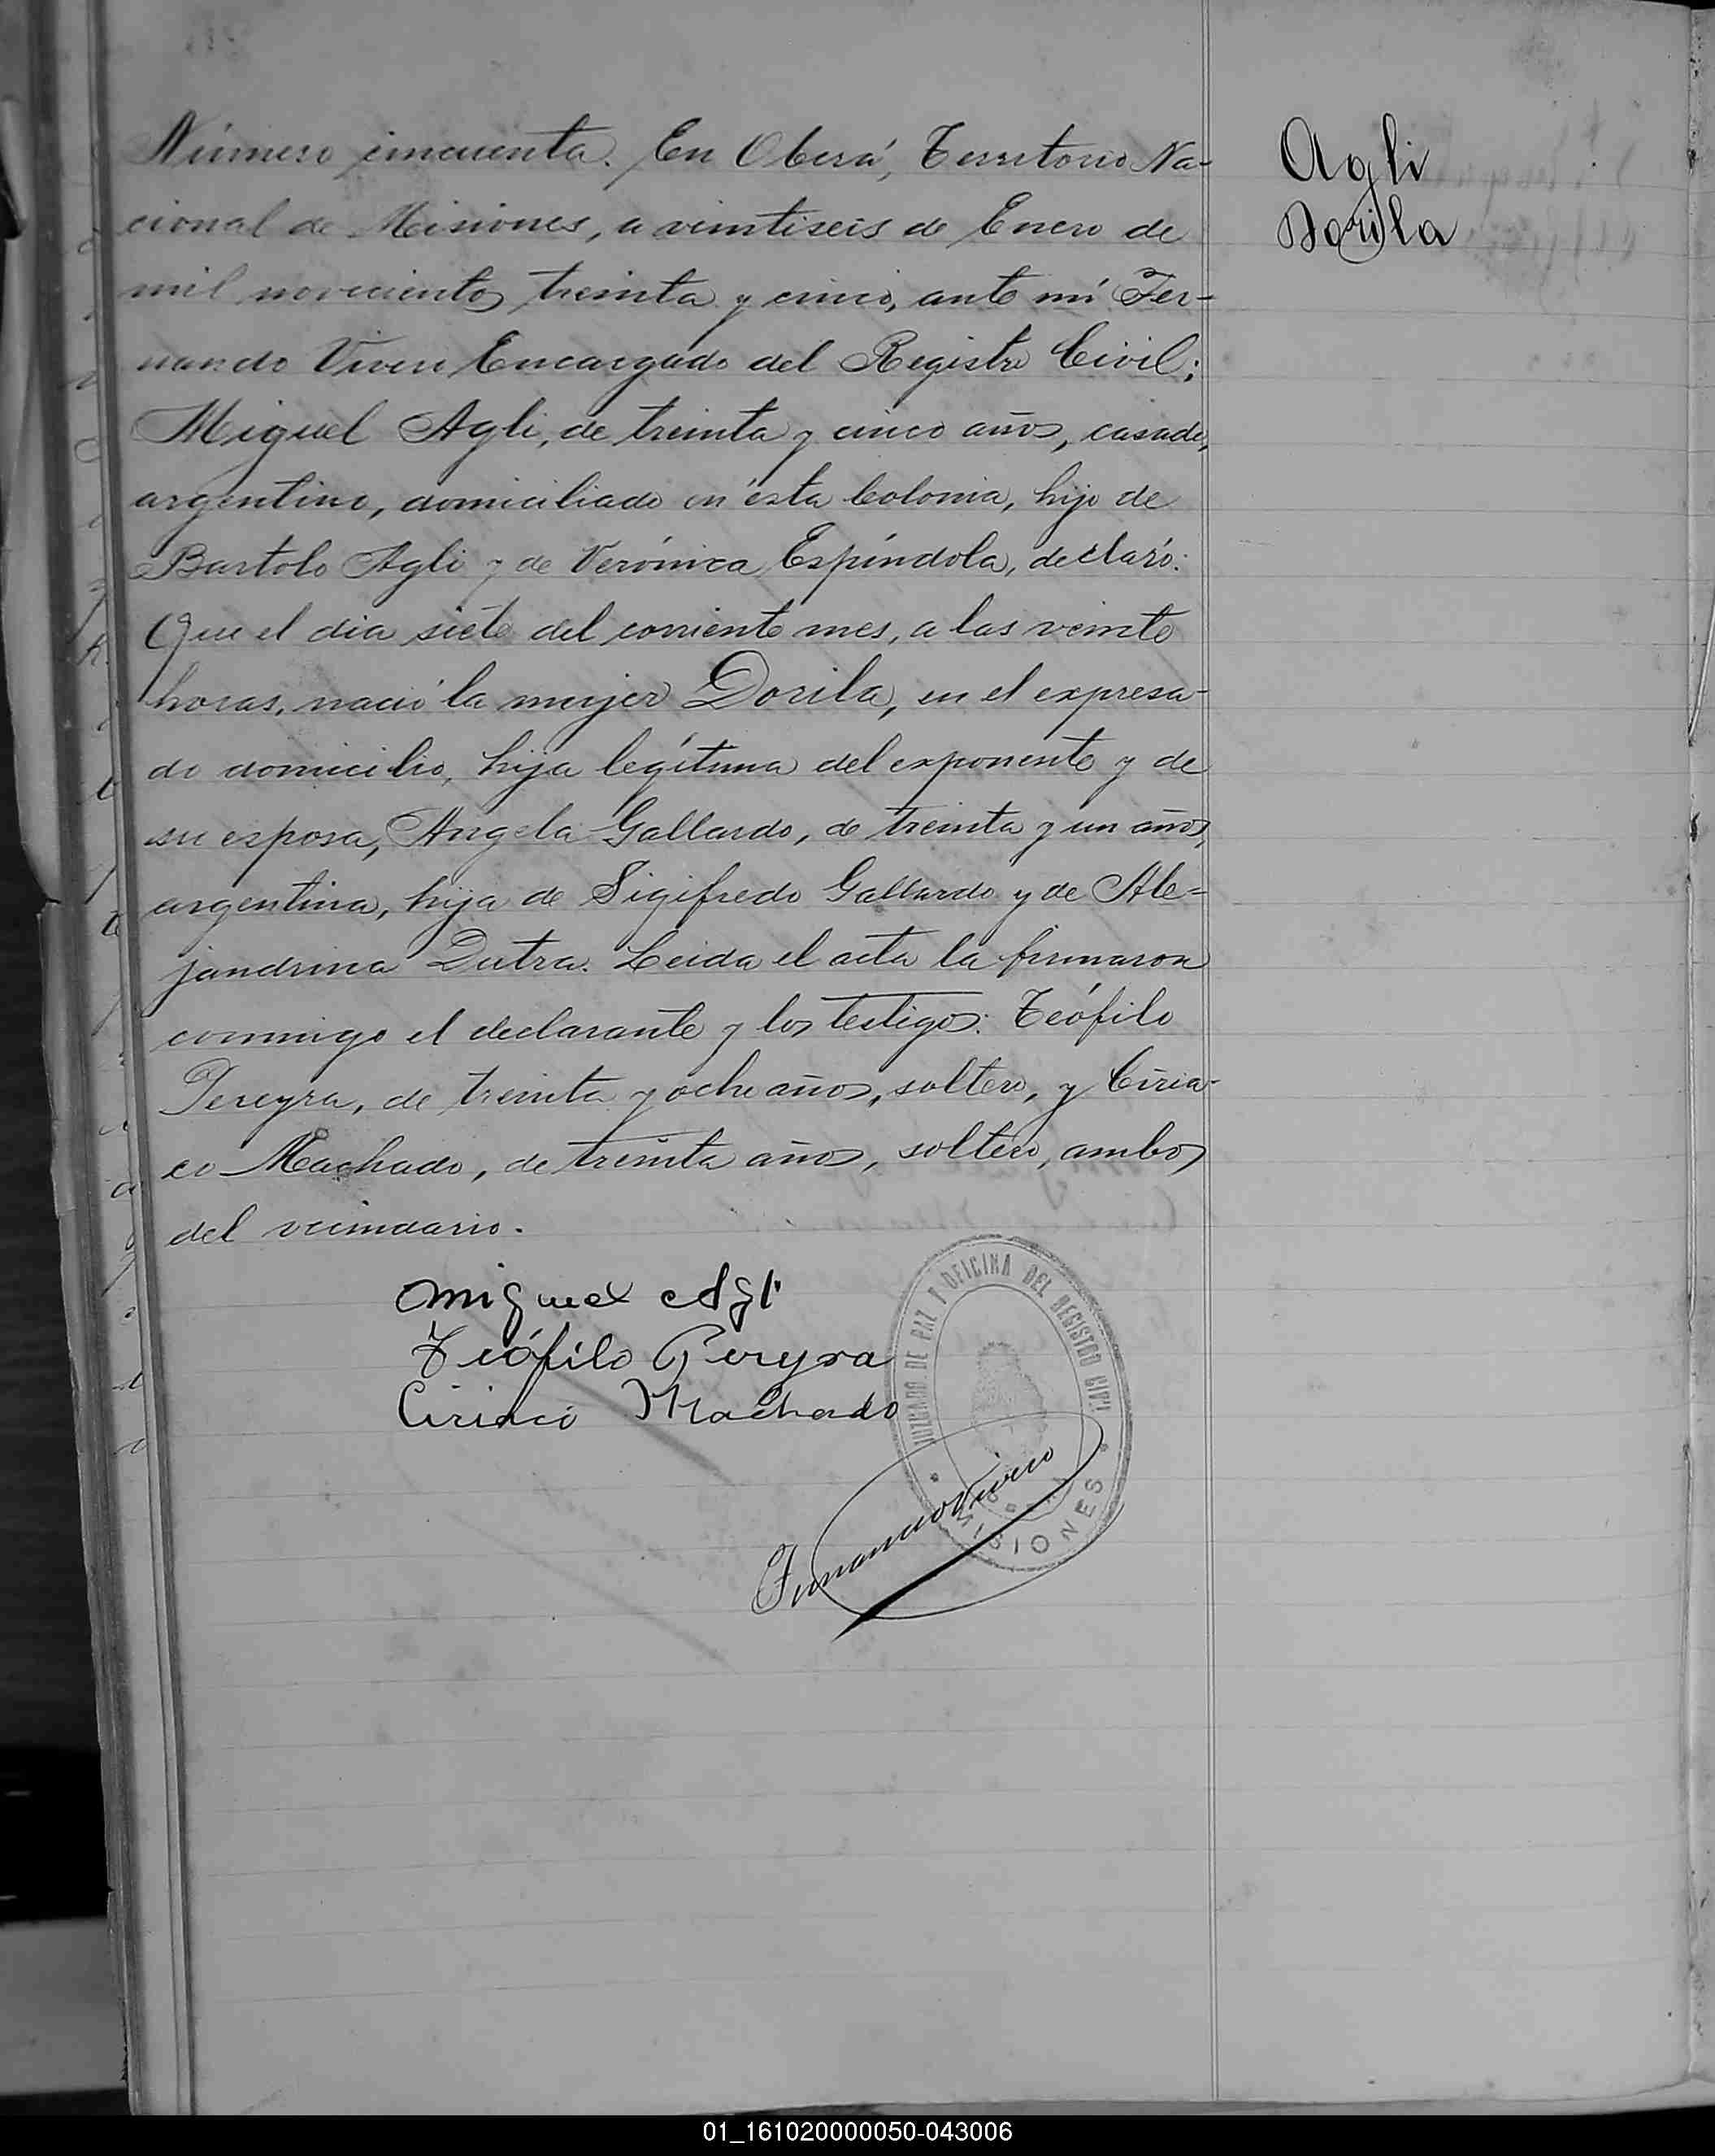 Número cincuenta. En Oberá, Territorio Na-
cional de Misiones, a veintiseis de Enero de
mil novecientos treinta y cinco, ante mí Fer-
nando Vivero Encargado del Registro Civil;
Miguel Agli, de treinta y cinco años, casado,
argentino, domiciliado en ésta Colonia, hijo de
Bartolo Agli y de Verónica Espíndola, declaró:
Que el dia siete del corriente mes, a las veinte
horas, nació la mujer Dorila, en el expresa-
do domicilio, hija legítima del exponente y de
su esposa, Angela Gallardo, de treinta y un años,
argentina, hija de Sigifredo Gallardo y de Ale=
jandrina Dutra. Leida el acta la firmaron
conmigo el declarante y los testigos: Teófilo
Pereyra, de treinta y ocho años, soltero, y Ciria-
co Machado, de treinta años, soltero, ambos
del vecindario.
Miguel Agli
Teófilo Pereyra
Ciriaco Machado
Fernando Vivero
JUZGADO DE PAZ Y OFICINA DEL REGISTRO CIVIL
MISIONES
Agli
Dorila
01_161020000050-043006